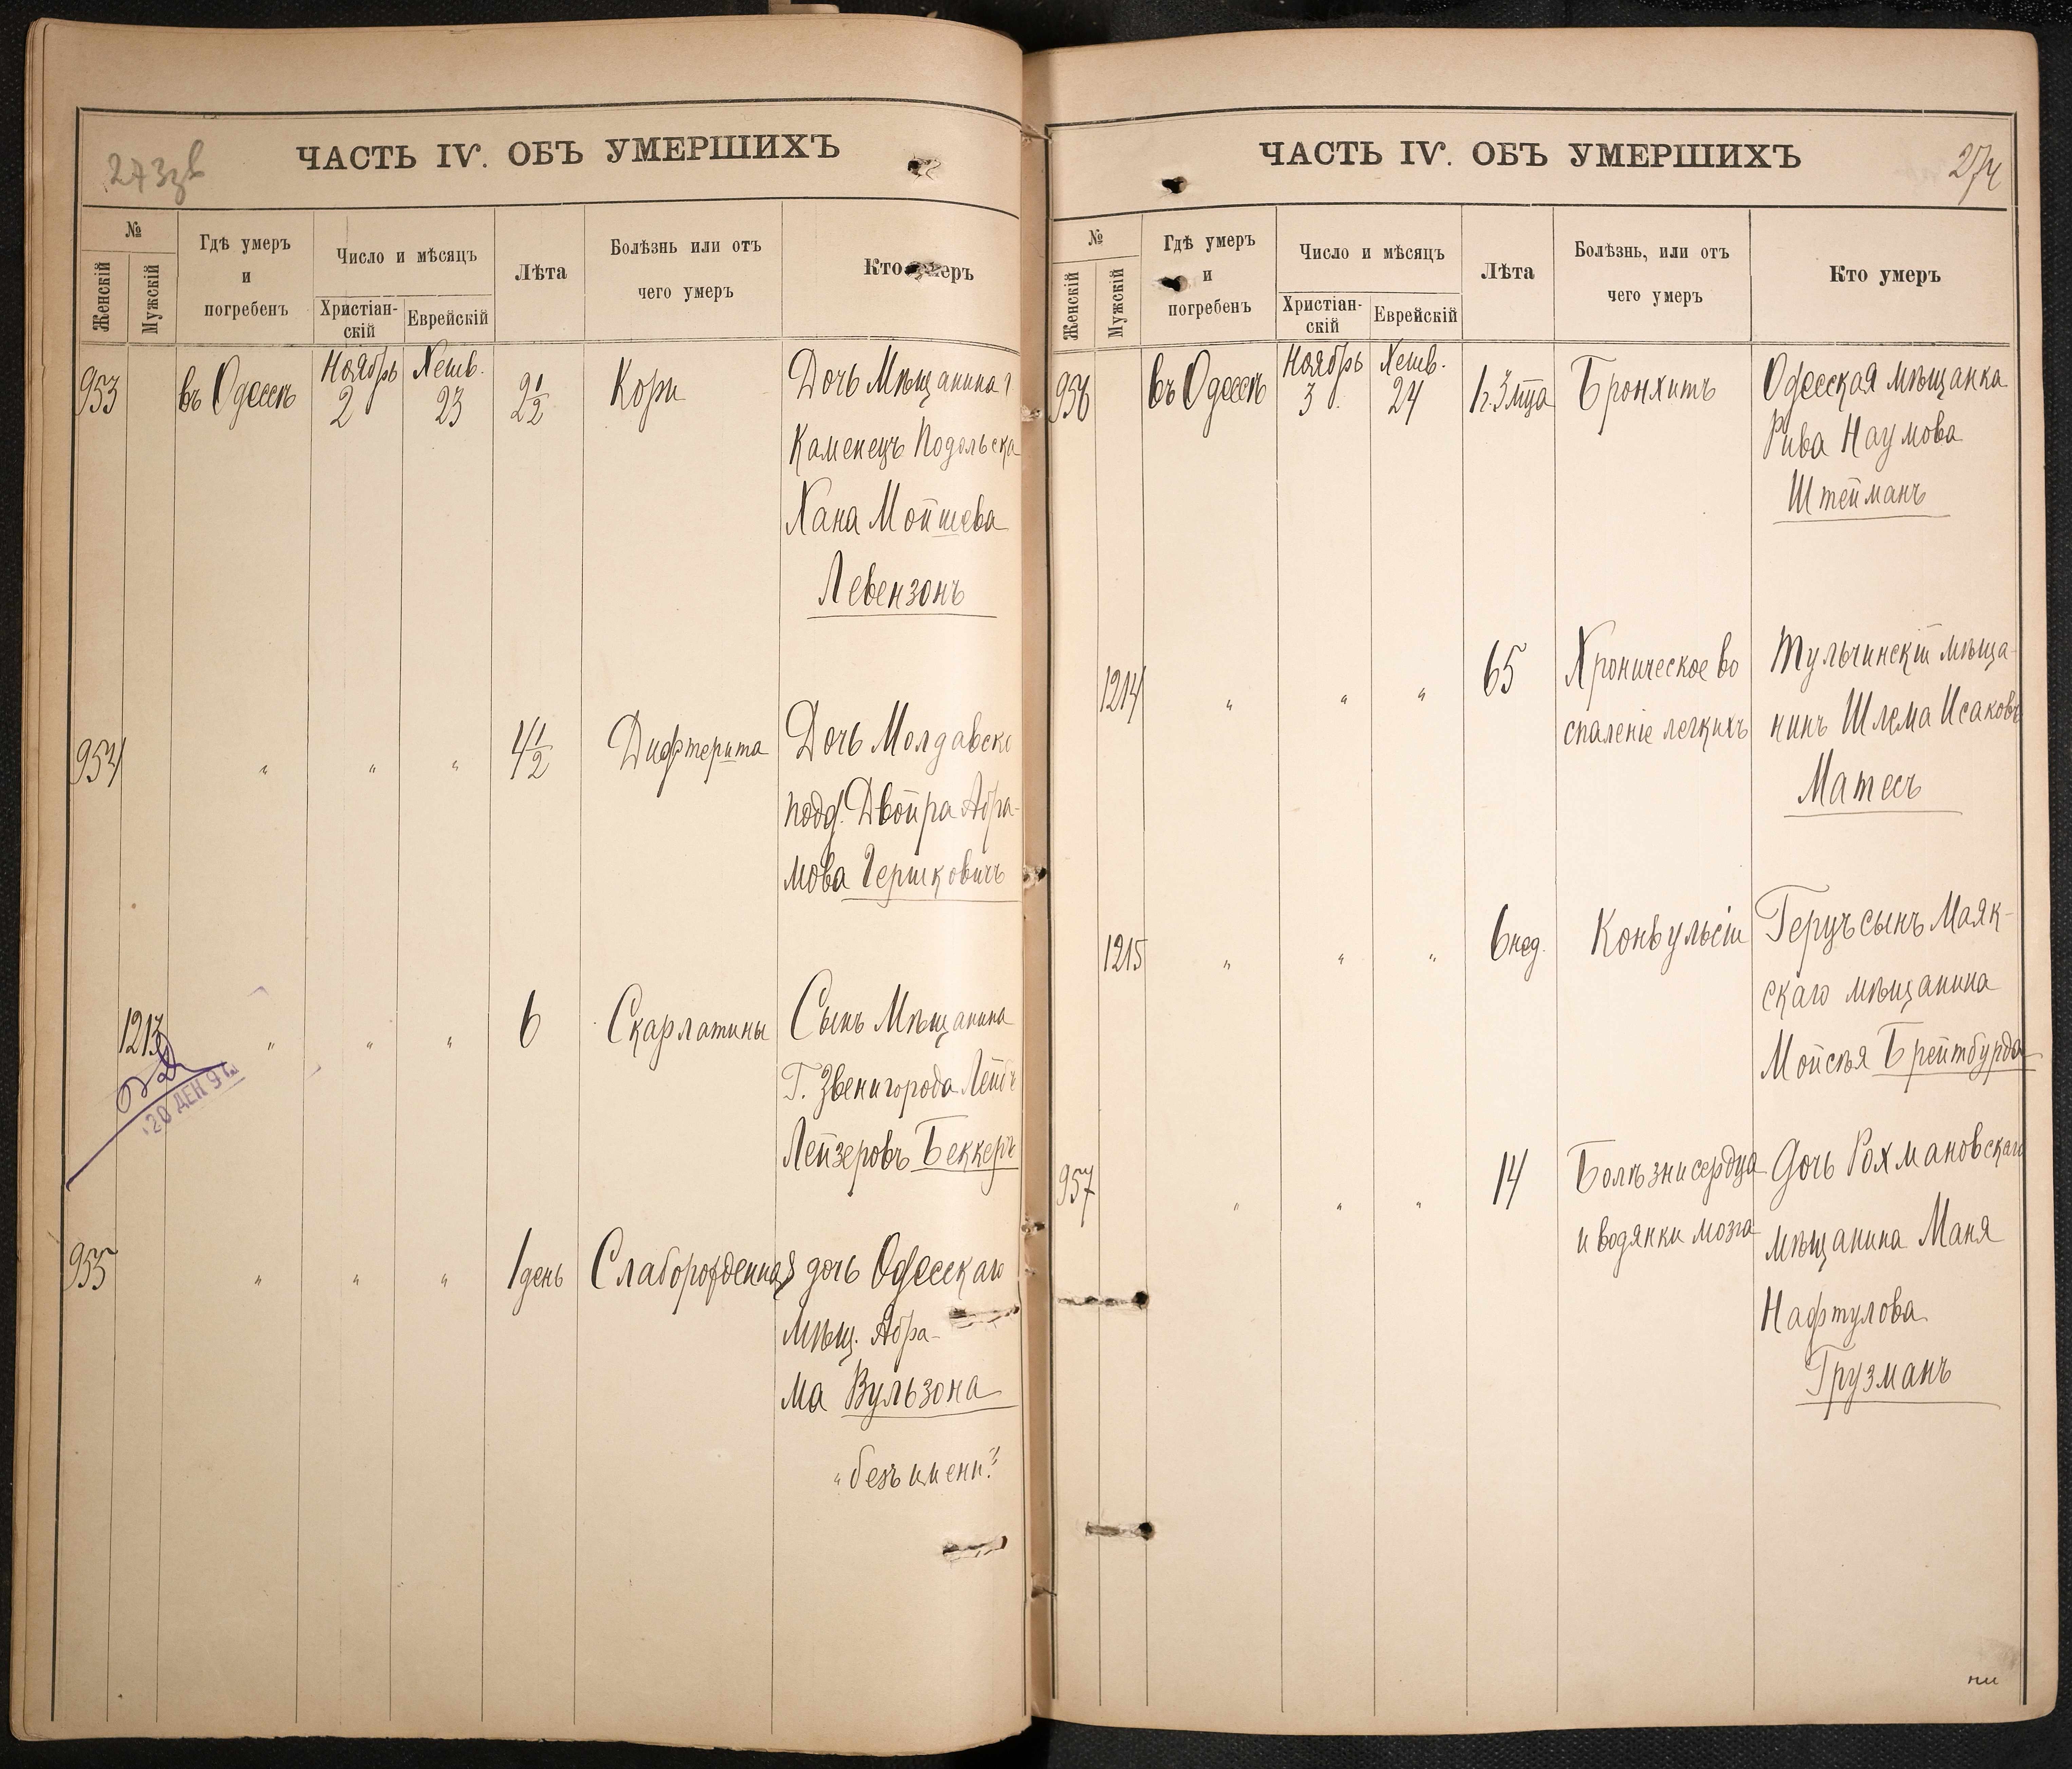 273зв
ЧАСТЬ IV. ОБЪ УМЕРШИХЪ
№
Женскій
Мужскій
Гдѣ умеръ
и
погребенъ
Число и мѣсяцъ
Христіан-
скій
Еврейскій
Лѣта
Болѣзнь или отъ
чего умеръ
Кто умеръ
953 въ Одессѣ Ноябрь 2 Хешв. 23 2½ Кори Дочь Мѣщанина г
Каменецъ Подольска
Хана Мойшева
Левензонъ
954 " " " 4½ Дифтерита Дочь Молдавско
подд. Двойра Абра-
мова Гершковичъ
1213 " " " 6 Скарлатины Сынъ Мѣщанина
Г. Звенигорода
Лейзеровъ Беккеръ
955 " " " 1 день Слаборожденная дочь Одесскаго
мѣщ. Абра-
ма Вульзона
"безъ имени"
ЧАСТЬ IV. ОБЪ УМЕРШИХЪ
274
№
Женскій
Мужскій
Гдѣ умеръ
и
погребенъ
Число и мѣсяцъ
Христіан-
скій
Еврейскій
Лѣта
Болѣзнь, или отъ
чего умеръ
Кто умеръ
956 въ Одессѣ Ноябрь 3 Хешв. 24 1г. 3 мца Бронхитъ Одесская мѣщанка
Рива Наумова
Штейманъ
1214 " " " 65 Хроническое во Тульчинскій мѣща-
спаленіе легкихъ нинъ Шлема Исаковъ
Матесъ
1215 " " " 6 нед. Конвульсіи Герцъ сынъ Маяк-
скаго мѣщанина
Мойсѣя Брейтбурда
957 " " " 14 Болѣзни сердца Дочь Рохмановскаго
и водянки мозга мѣщанина Маня
Нафтулова
Грузманъ